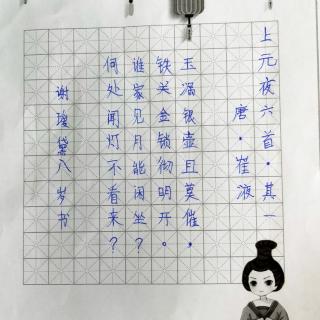 上元夜六首·其一
唐·崔液
玉漏银壶且莫催，
铁关金锁彻明开。
谁家见月能闲坐？
何处闻灯不看来？
谢黛八岁书